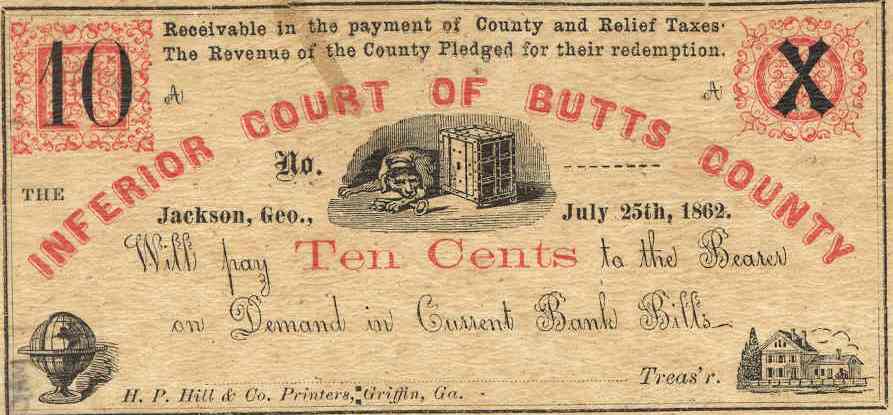 Receivable in the payment of County and Relief Taxes.
The Revenue of the County Pledged for their redemption.
10
X
A
A
THE
INFERIOR COURT OF BUTTS COUNTY
No.
Jackson, Geo., July 25th, 1862.
Will pay Ten Cents to the Bearer
on Demand in Current Bank Bills
Treas'r.
H. P. Hill & Co. Printers, Griffin, Ga.